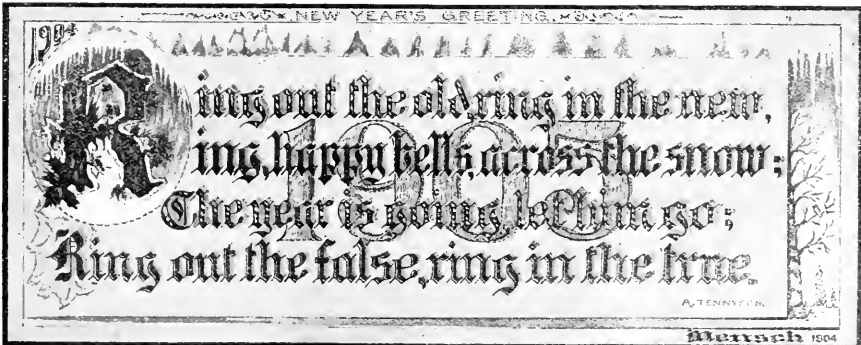 NEW YEAR'S GREETING.
1904
Ring out the old, ring in the new,
ing, happy bells, across the snow:
1905
The year is going, let him go;
Ring out the false, ring in the true.
A. TENNYSON.
Mensch 1904